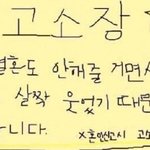 고소장
결혼도 안해줄 거면서
살짝 웃었기 때문
니다.
X혼인신고시 고소